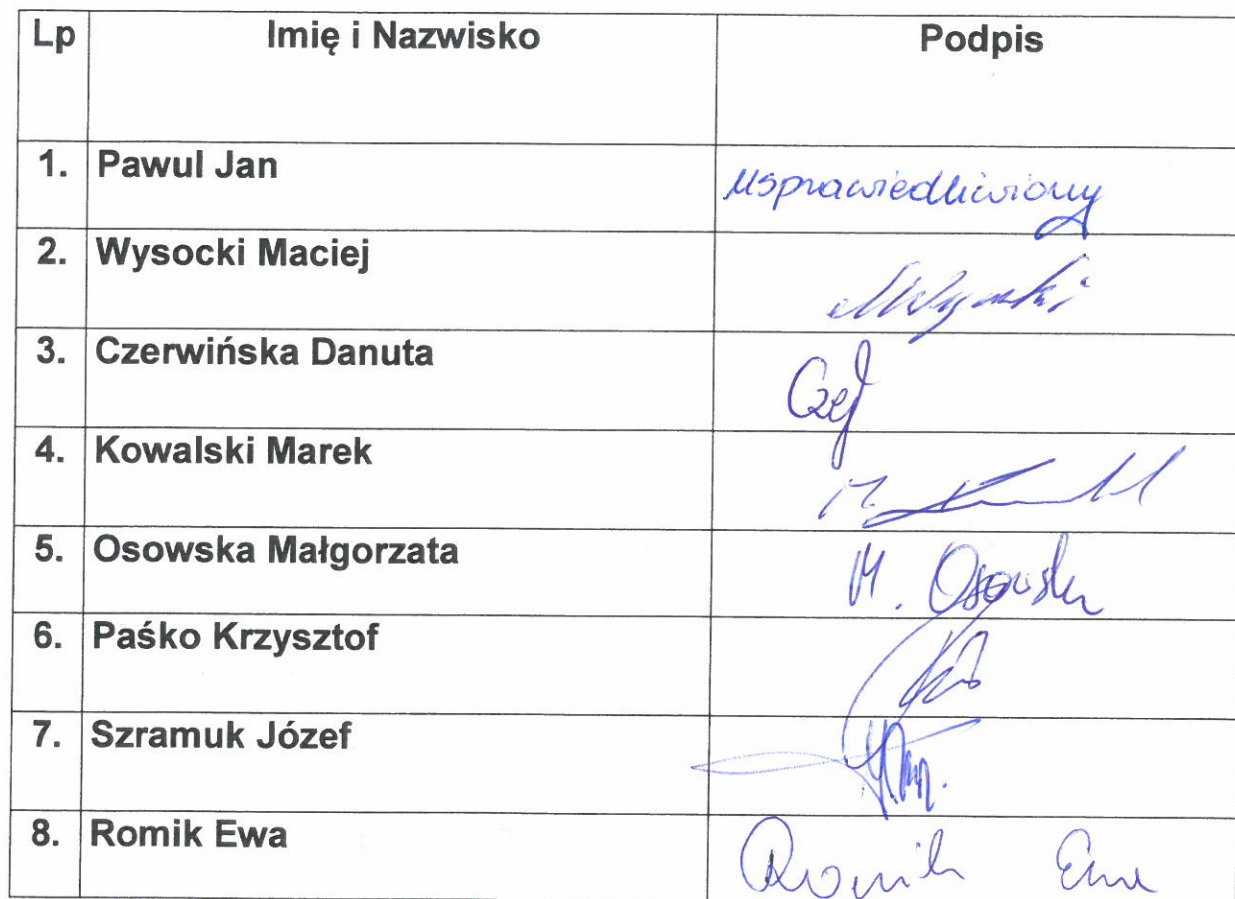 Lp Imię i Nazwisko Podpis
1. Pawul Jan usprawiedliwiony
2. Wysocki Maciej
3. Czerwińska Danuta
4. Kowalski Marek
5. Osowska Małgorzata M. Osowska
6. Paśko Krzysztof
7. Szramuk Józef
8. Romik Ewa Romik Ewa